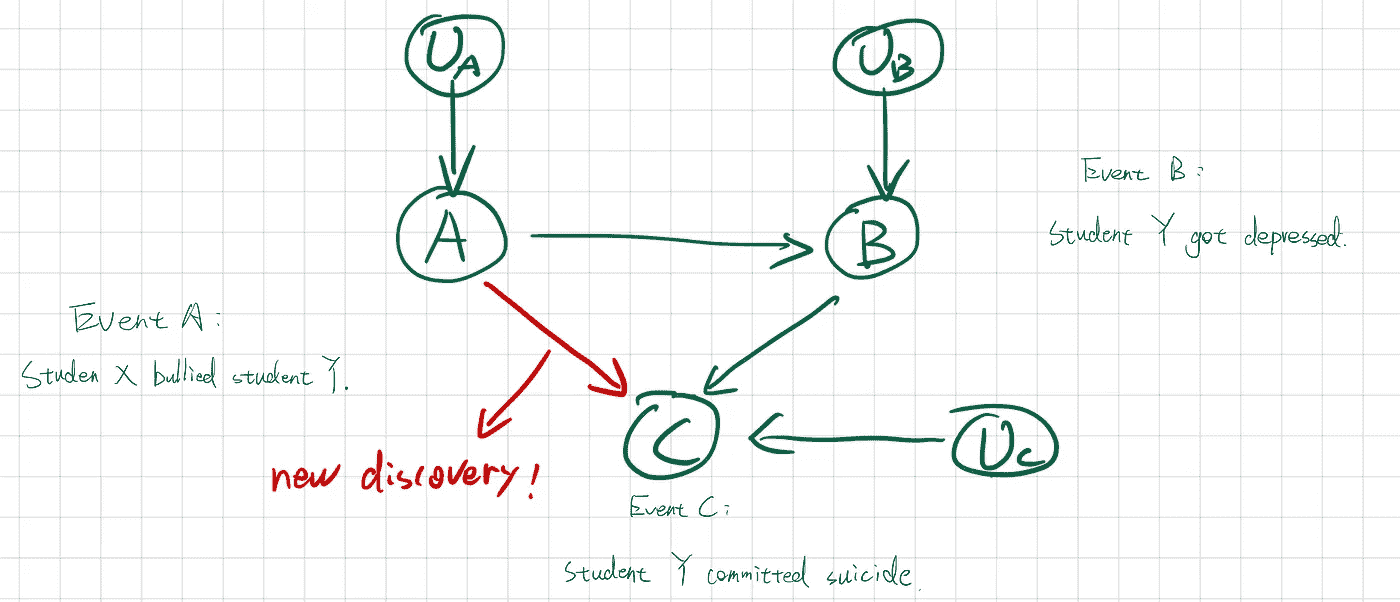 U_A
U_B
A
B
Event B:
Student Y got depressed.
Event A:
Studen X bullied student Y.
new discovery!
C
U_C
Event C:
Student Y committed suicide.